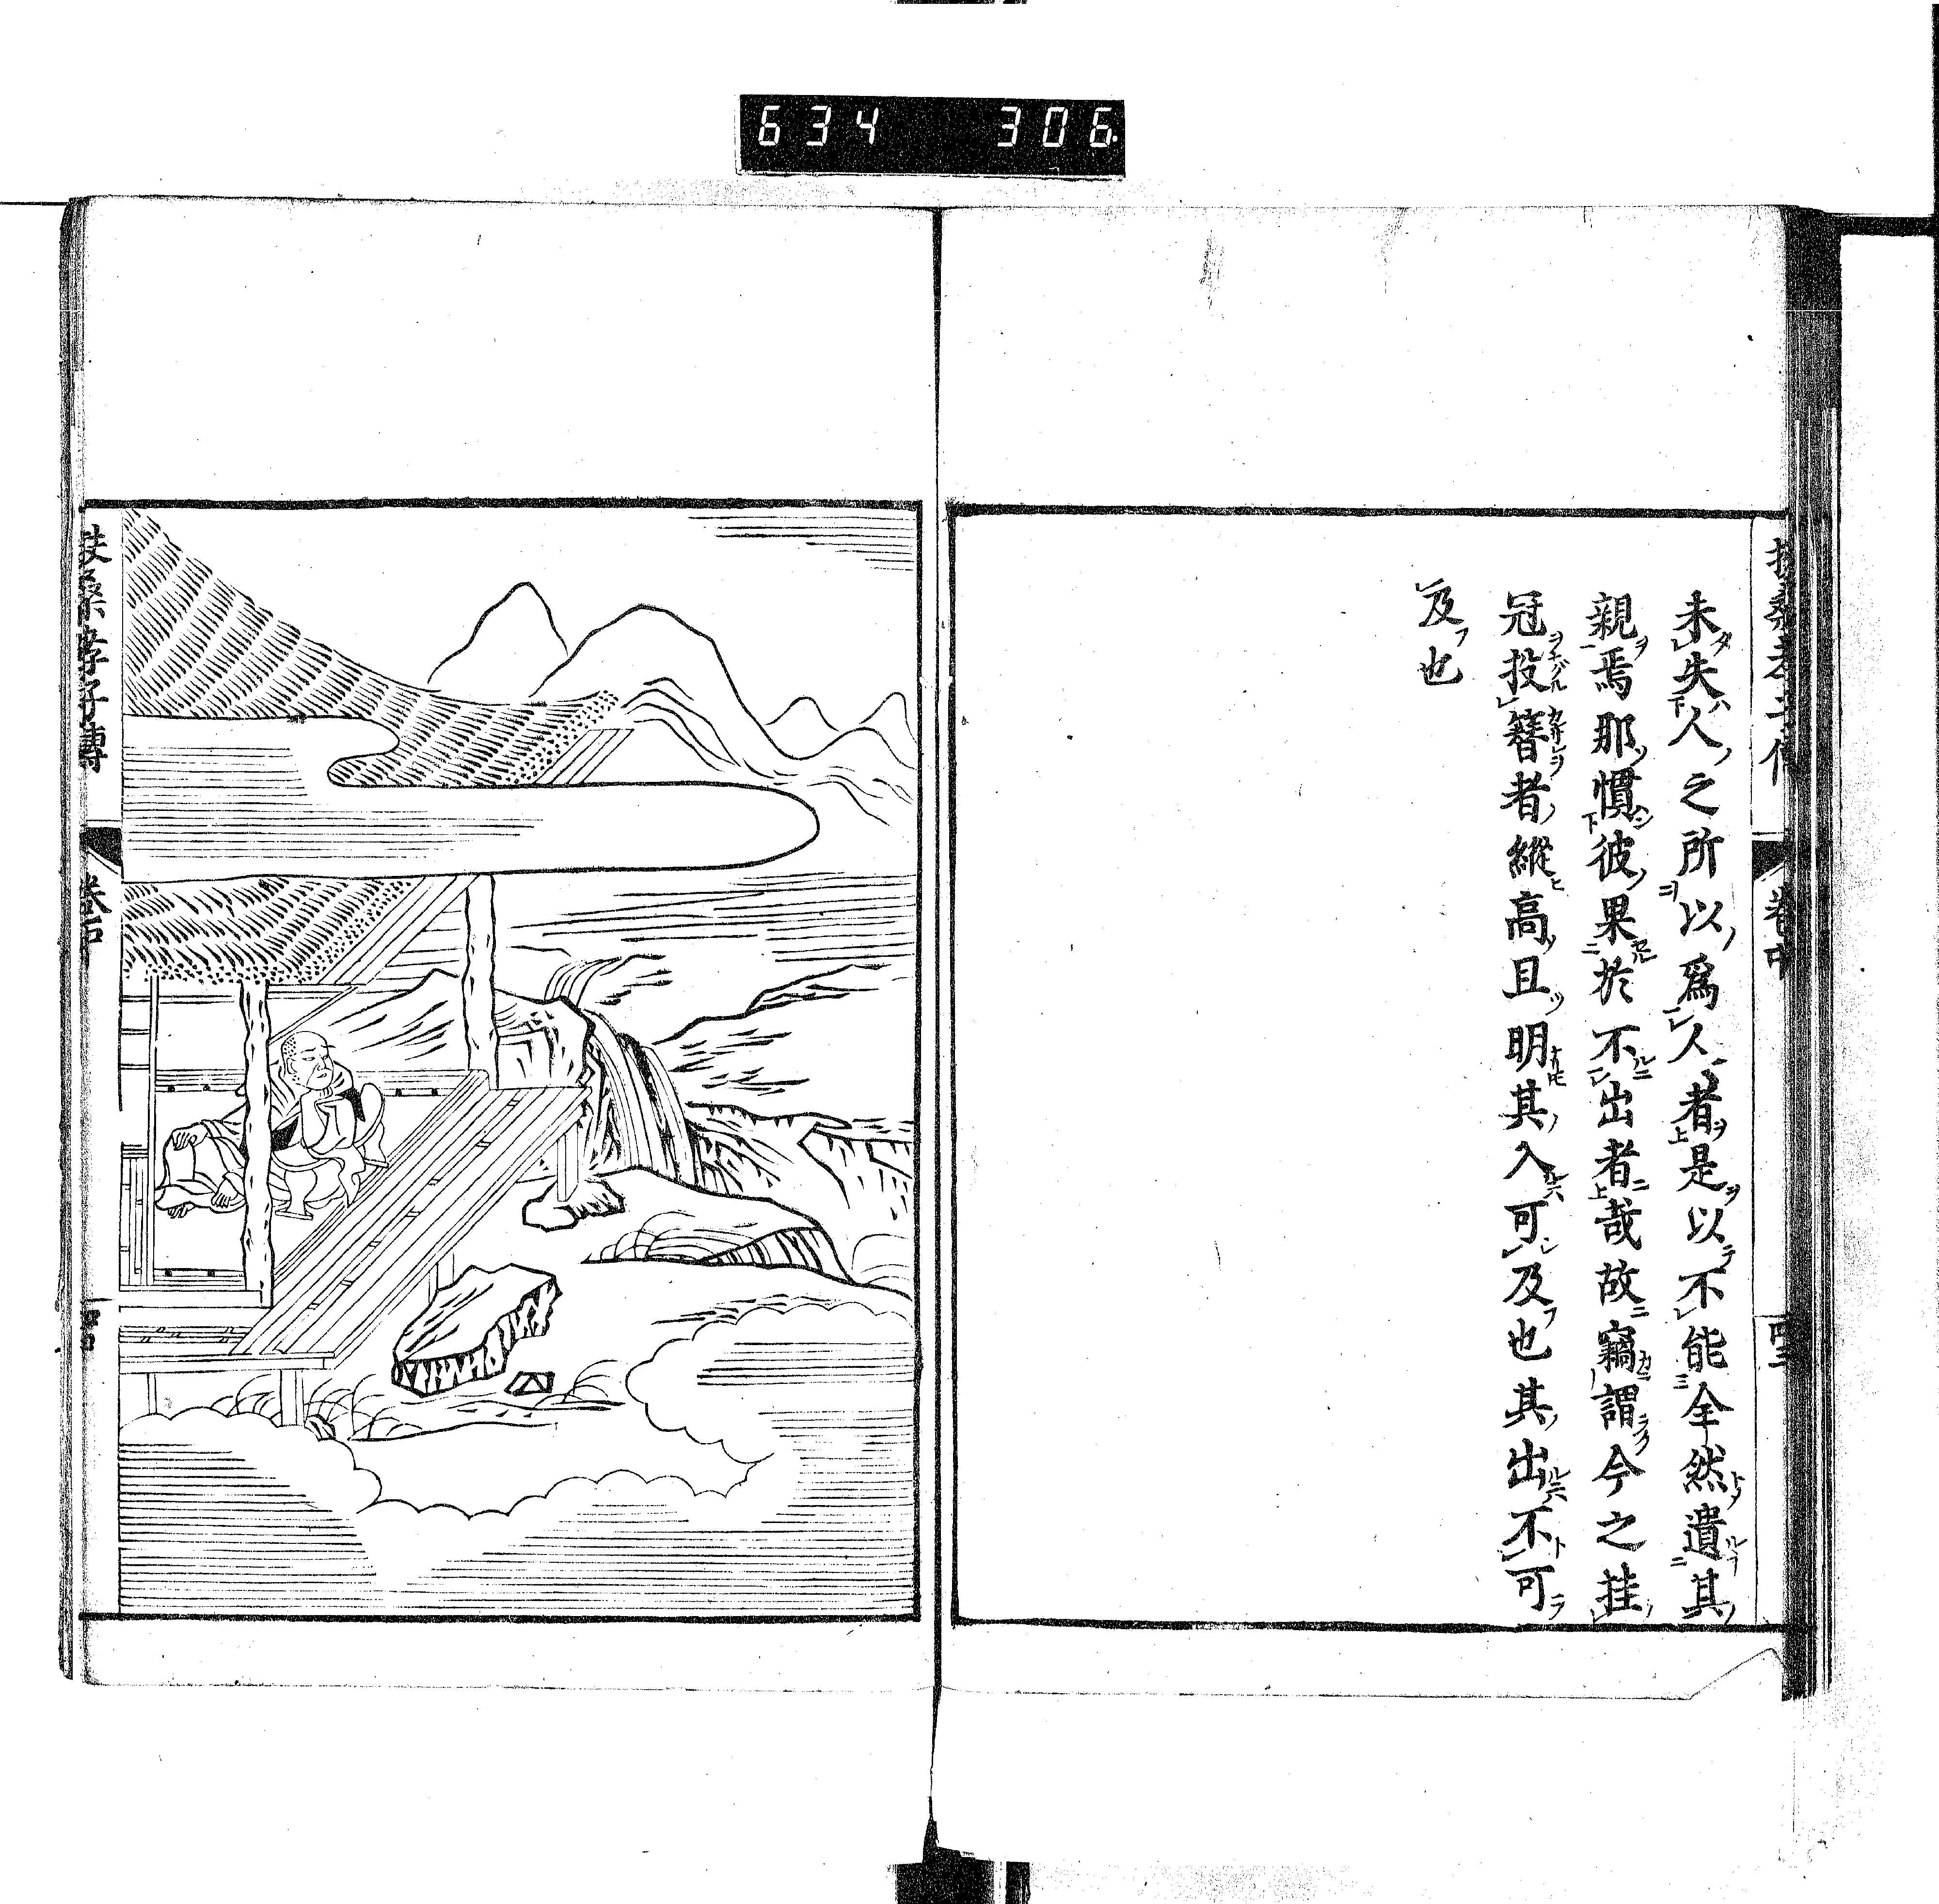 634 306
未失人之所以爲人者是以不能全然遺其
親焉那慣彼果於不出者哉故竊謂今之挂
冠投簪者縱高且明其入可及也其出不可
及也
扶桑孝子傳
卷中
扶桑孝子傳
卷中